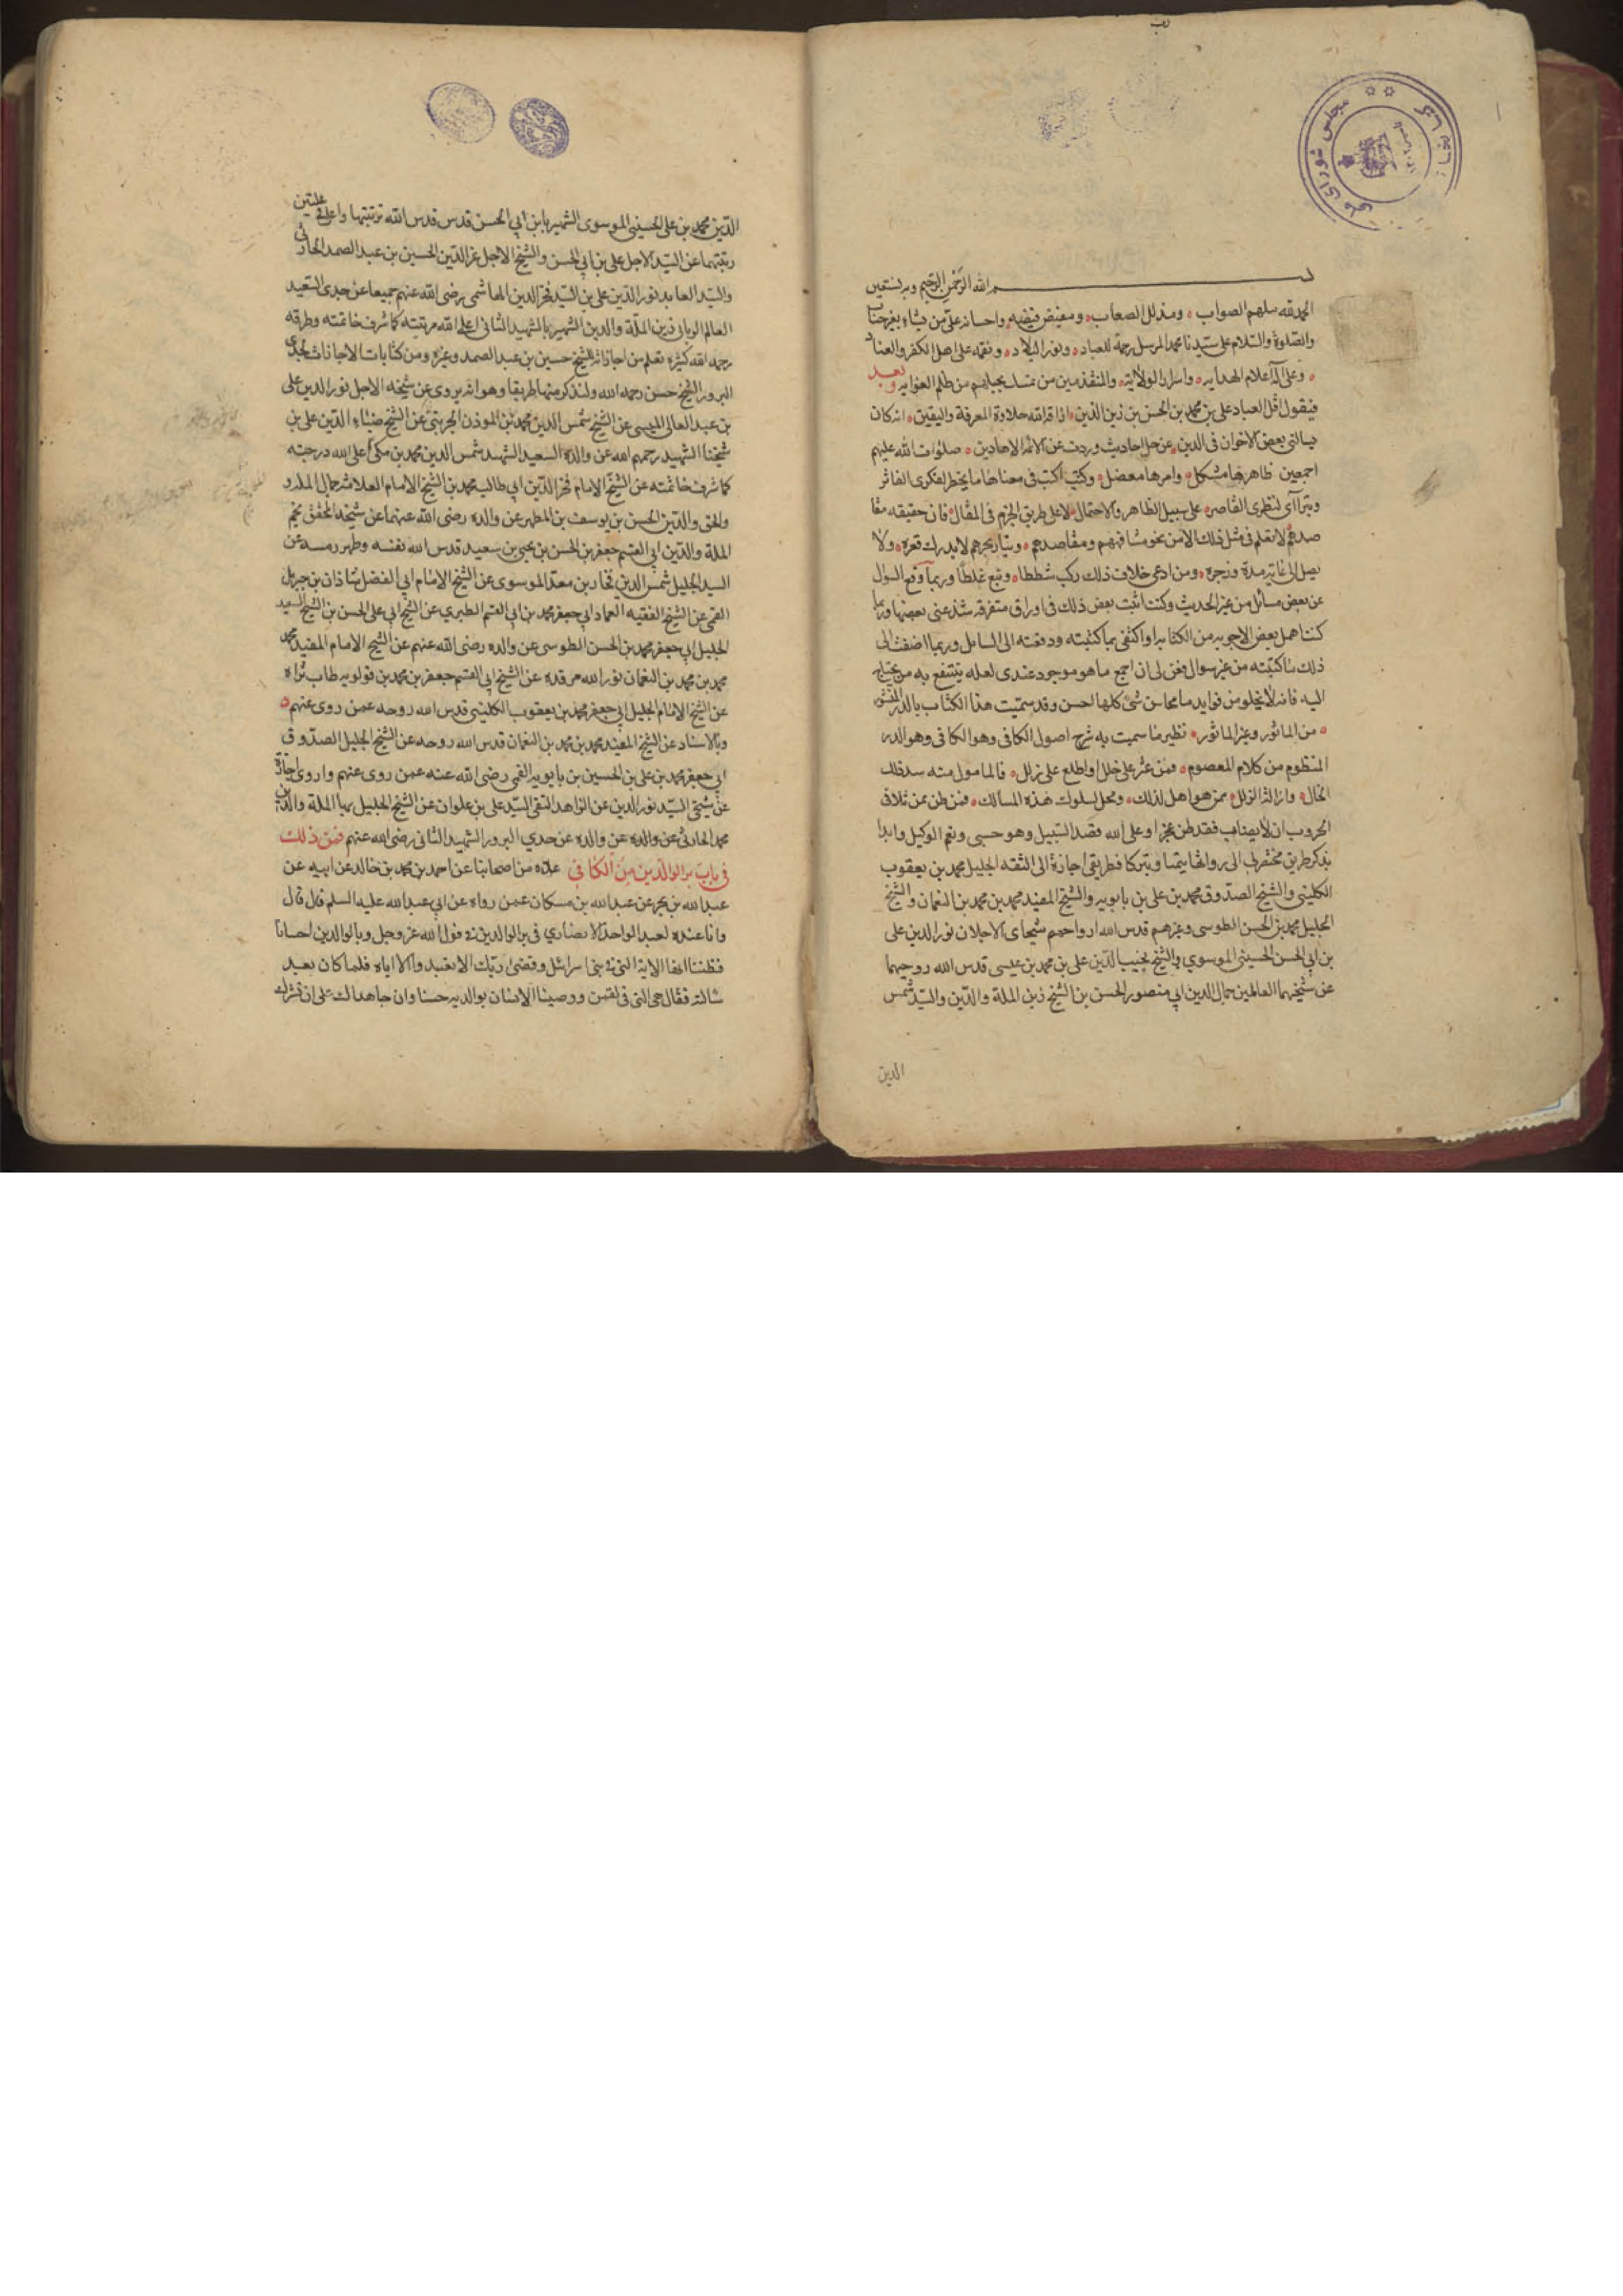 بسم الله الرحمن الرحيم وبه نستعين
الحمد لله ملهم الصواب ومذلل الصعاب ومفيض فيضه واحسانه على من يشاء بغير حساب
والصلوة والسلام على سيدنا محمد المرسل رحمة للعباد ونورا للبلاد ونقمه على اهل الكفر والعناد
وعلى آله اعلام الهدايه واسرار الولاية والمنقذين من تمسك بحبلهم من ظلم الغوايه وبعد
فيقول اقل العباد على بن محمد بن الحسن بن زين الدين اذاقه الله حلاوة المعرفة واليقين انه كان
يسالنى بعض الاخوان فى الدين عن حل احاديث وردت عن الائمة الهادين صلوات الله عليهم
اجمعين ظاهرها مشكل وامرها معضل وكنت اكتب فى معناها ما يخطر لفكرى الفاتر
ويترآاى لنظرى القاصر على سبيل الظاهر والاحتمال لا على طريق الجزم فى المقال فان حقيقه مقا
صدهم لا تعلم فى مثل ذلك الا من نحو مشافهتهم ومقاصدهم وتيار بحرهم لا يدرك قعره ولا
يصل الى غايته مده وجزره ومن ادعى خلاف ذلك ركب شططا وتبع غلطا وربما وقع السؤال
عن بعض مسائل من غير الحديث وكنت اثبت بعض ذلك فى اوراق متفرقه شذ عنى بعضها وربما
كنت اهمل بعض الاجوبه من الكتابه او اكتفى بما كتبته ودفعته الى السائل وربما اضفت الى
ذلك ما كتبته من غير سوال فعن لى ان اجمع ما هو موجود عندى لعله ينتفع به من يحتاج
اليه فانه لا يخلو من فوايد ما محاسن شئ كلها لحسن وقد سميت هذا الكتاب بالدر المنثور
من الماثور وغير الماثور نظير ما سميت به شرح اصول الكافى وهو الكافى وهو الدر
المنظوم من كلام المعصوم فمن عثر على خلل واطلع على زلل فالمامول منه سد ذلك
الخلل وازالة الزلل ممن هو اهل لذلك ومحل لسلوك هذه المسالك فمن ظن ممن تلاقى
الحروب ان لا يصاب فقد ظن عجزا وعلى الله قصد السبيل وهو حسبى ونعم الوكيل وابدا
بذكر طريق مختصر لى الى رواتها تيمنا وتبركا فطريقى اجازة الى الثقه الجليل محمد بن يعقوب
الكلينى والشيخ الصدوق محمد بن على بن بابويه والشيخ المفيد محمد بن محمد بن النعمان والشيخ
الجليل محمد بن الحسن الطوسى وغيرهم قدس الله ارواحهم شيخاى الاجلان نور الدين على
بن ابى الحسن الحسينى الموسوي والشيخ نجيب الدين على بن محمد بن عيسى قدس الله روحيهما
عن شيخيهما العالمين جمال الدين ابى منصور الحسن بن الشيخ زين الملة والدين والسيد شمس
الدين
الدين محمد بن على الحسينى الموسوى الشهير بابن ابى الحسن قدس قدس الله تربتيهما واعلى فى عليين
رتبتهما عن السيد الاجل على بن ابى الحسن والشيخ الاجل عز الدين الحسين بن عبد الصمد الحارثى
والسيد العابد نور الدين على بن السيد فخر الدين الهاشمى رضى الله عنهم جميعا عن جدى السعيد
العالم الربانى زين الملة والدين الشهير بالشهيد الثانى اعلى الله مرتبته كما شرف خاتمته وطرقه
رحمه الله كثيره تعلم من اجازاته للشيخ حسين بن عبد الصمد وغيره ومن كتابات الاجازات لجدى
المبرور الشيخ حسن رحمه الله ولنذكر منها طريقا وهو انه يروى عن شيخه الاجل نور الدين على
بن عبد العالى الميسى عن الشيخ شمس الدين محمد بن الموذن الجزينى عن الشيخ ضياء الدين على بن
شيخنا الشهيد رحمهم الله عن والده السعيد الشهيد شمس الدين محمد بن مكى اعلى الله درجته
كما شرف خاتمته عن الشيخ الامام فخر الدين ابى طالب محمد بن الشيخ الامام العلامه جمال المله و
والحق والدين الحسن بن يوسف بن المطهر عن والده رضى الله عنهما عن شيخه المحقق نجم
الملة والدين ابى القسم جعفر بن الحسن بن يحيى بن سعيد قدس الله نفسه وطهر رمسه عن
السيد الجليل شمس الدين فخار بن معد الموسوى عن الشيخ الامام ابى الفضل شاذان بن جبرئل
القمى عن الشيخ الفقيه العماد ابى جعفر محمد بن ابى القسم الطبرى عن الشيخ ابى على الحسن بن الشيخ السعيد
الجليل ابى جعفر محمد بن الحسن الطوسى عن والده رضى الله عنهم عن الشيخ الامام المفيد محمد
محمد بن محمد بن النعمان نور الله مرقده عن الشيخ ابى القسم جعفر بن محمد بن قولويه طاب ثراه
عن الشيخ الامام الجليل ابى جعفر محمد بن يعقوب الكلينى قدس الله روحه عمن روى عنهم
وبالاسناد عن الشيخ المفيد محمد بن محمد بن النعمان قدس الله روحه عن الشيخ الجليل الصدوق
ابى جعفر محمد بن على بن الحسين بن بابويه القمى رضى الله عنه عمن روى عنهم واروى اجازة
عن شيخى السيد نور الدين عن الزاهد التقى السيد على بن علوان عن الشيخ الجليل بهاء الملة والدين
محمد الحارثى عن والده عن والده عن جدي المبرور الشهيد الثانى رضى الله عنهم فمن ذلك
فى باب بر الوالدين من الكافى عدة من اصحابنا عن احمد بن محمد بن خالد عن ابيه عن
عبد الله بن بحر عن عبد الله بن مسكان عمن رواه عن ابى عبد الله عليه السلم قال قال
وانا عنده لعبد الواحد الانصارى فى بر الوالدين فى قول الله عز وجل وبالوالدين احسانا
فظننا انها الاية التى فى بنى اسرائل وقضى ربك الا تعبدوا الا اياه فلما كان بعد
سالته فقال هى التى فى لقمن ووصينا الانسان بوالديه حسنا وان جاهداك على ان تشرك